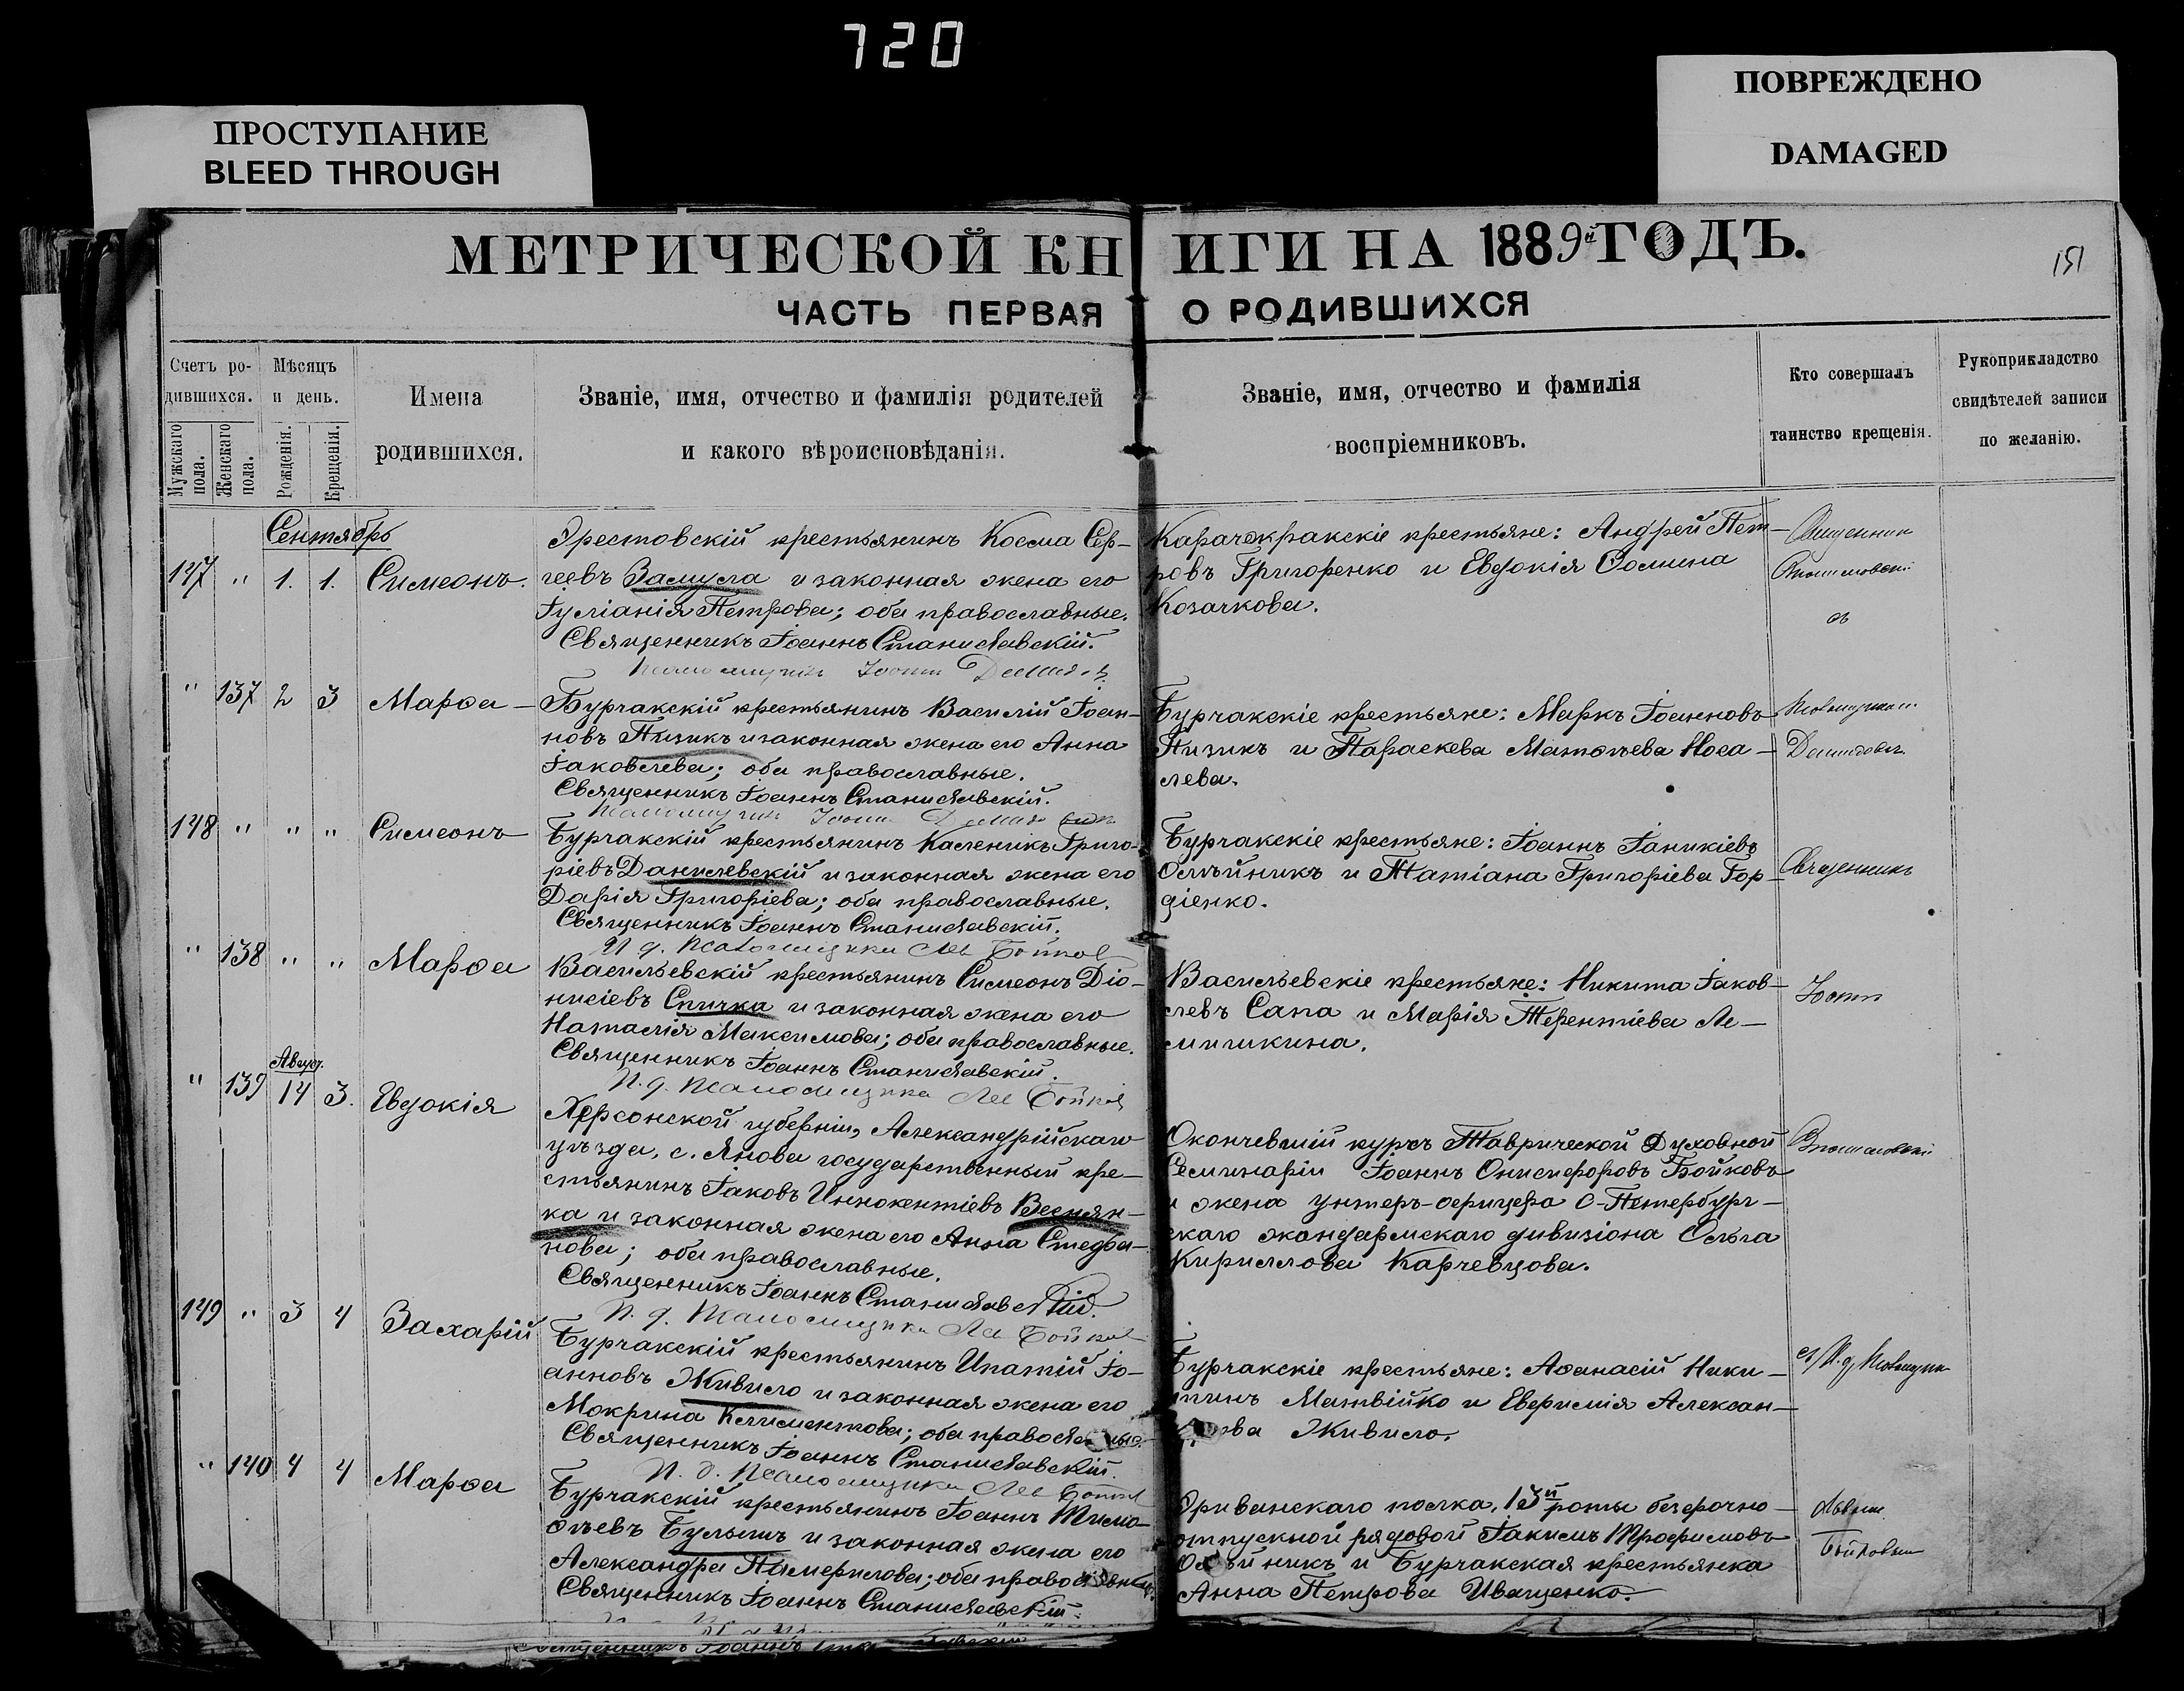 720
ПРОСТУПАНИЕ
BLEED THROUGH
ПОВРЕЖДЕНО
DAMAGED
МЕТРИЧЕСКОЙ КНИГИ НА 1889й ГОДЪ.
151
ЧАСТЬ ПЕРВАЯ О РОДИВШИХСЯ
Счетъ ро-
дившихся.
Мужскаго пола.
Женскаго пола.
Мѣсяцъ
и день.
Рожденія.
Крещенія.
Имена
родившихся.
Званіе, имя, отчество и фамилія родителей
и какого вѣроисповѣданія.
Званіе, имя, отчество и фамилія
воспріемниковъ.
Кто совершалъ
таинство крещенія.
Рукоприкладство
свидѣтелей записи
по желанію.
Сентябрь
147 " 1. 1. Симеонъ.
Эрестовскій крестьянинъ Косма Сер-
геевъ Замула и законная жена его
Іуліанія Петрова; оба православные.
Священникъ Іоаннъ Станиславскій.
Псаломщикъ Іоаннъ
Карачокракскіе крестьяне: Андрей Пет-
ровъ Григоренко и Евдокія Ѳомина
Козачкова.
Священник
" 137 2 3 Марѳа
Бурчакскій крестьянинъ Василій Іоан-
новъ Пизикъ и законная жена его Анна
Іаковлева; оба православные.
Священникъ Іоаннъ Станиславскій.
Псаломщикъ Іоаннъ
Бурчакскіе крестьяне: Маркъ Іоанновъ
Пизикъ и Параскева Матѳѣева Носа-
лева.
148 " " " Симеонъ
Бурчакскій крестьянинъ Каленикъ Григо-
ріевъ Данилевскій и законная жена его
Дарія Григоріева; оба православные.
Священникъ Іоаннъ Станиславскій.
И. д. Псаломщика Лев Бойков
Бурчакскіе крестьяне: Іоаннъ Іаникіевъ
Олѣйникъ и Татіана Григоріева Гор-
діенко.
Священникъ
" 138 " " Марѳа
Васильевскій крестьянинъ Симеонъ Діо-
нисіевъ Спичка и законная жена его
Наталія Максимова; оба православные.
Священникъ Іоаннъ Станиславскій.
И. д. Псаломщика Лев Бойков
Васильевскіе крестьяне: Никита Іаков-
левъ Сапа и Марія Терентіева Ле-
мишкина.
Іоанн
Август.
" 139 14 3. Евдокія
Херсонской губерніи, Александрійскаго
уѣзда, с. Янова государственный кре-
стьянинъ Іаковъ Иннокентіевъ Веснян-
ка и законная жена его Анна Стефа-
нова; оба православные.
Священникъ Іоаннъ Станиславскій.
И. д. Псаломщика Лев Бойков
Окончевшій курсъ Таврической Духовной
Семинаріи Іоаннъ Онисифоровъ Бойковъ
и жена унтеръ-офицера С-Петербург-
скаго жандармскаго дивизіона Ольга
Кириллова Карчевцова.
149 " 3 4 Захарій
Бурчакскій крестьянинъ Ипатій Іо-
анновъ Живило и законная жена его
Мокрина Климентова; оба православные.
Священникъ Іоаннъ Станиславскій.
И. д. Псаломщика Лев Бойков
Бурчакскіе крестьяне: Аѳанасій Ники-
тинъ Матвійко и Евфимія Алексан-
Живило.
" 140 4 4 Марѳа
Бурчакскій крестьянинъ Іоаннъ Тимо-
ѳѣевъ и законная жена его
Александра Памфилова; оба православные.
Священникъ Іоаннъ Станиславскій.
Эриванскаго полка, 13й роты безсрочно-
отпускной рядовой Іакимъ Трофимовъ
Олѣйникъ и Бурчакская крестьянка
Анна Петрова Иващенко.
Львом
Бойковым